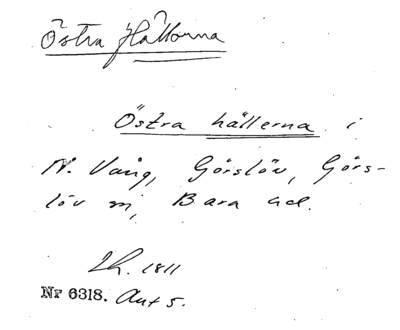 Östra Hällorna
Östra hällerna i
N. Vång, Görslöv, Görs-
löv sn, Bara hd.
Lh. 1811
Nr 6318. Akt 5.